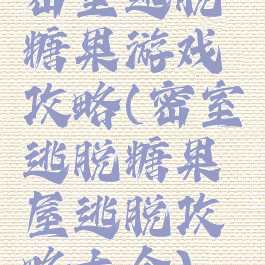 密室逃脱
糖果游戏
攻略(密室
逃脱糖果
屋逃脱攻
略大全)